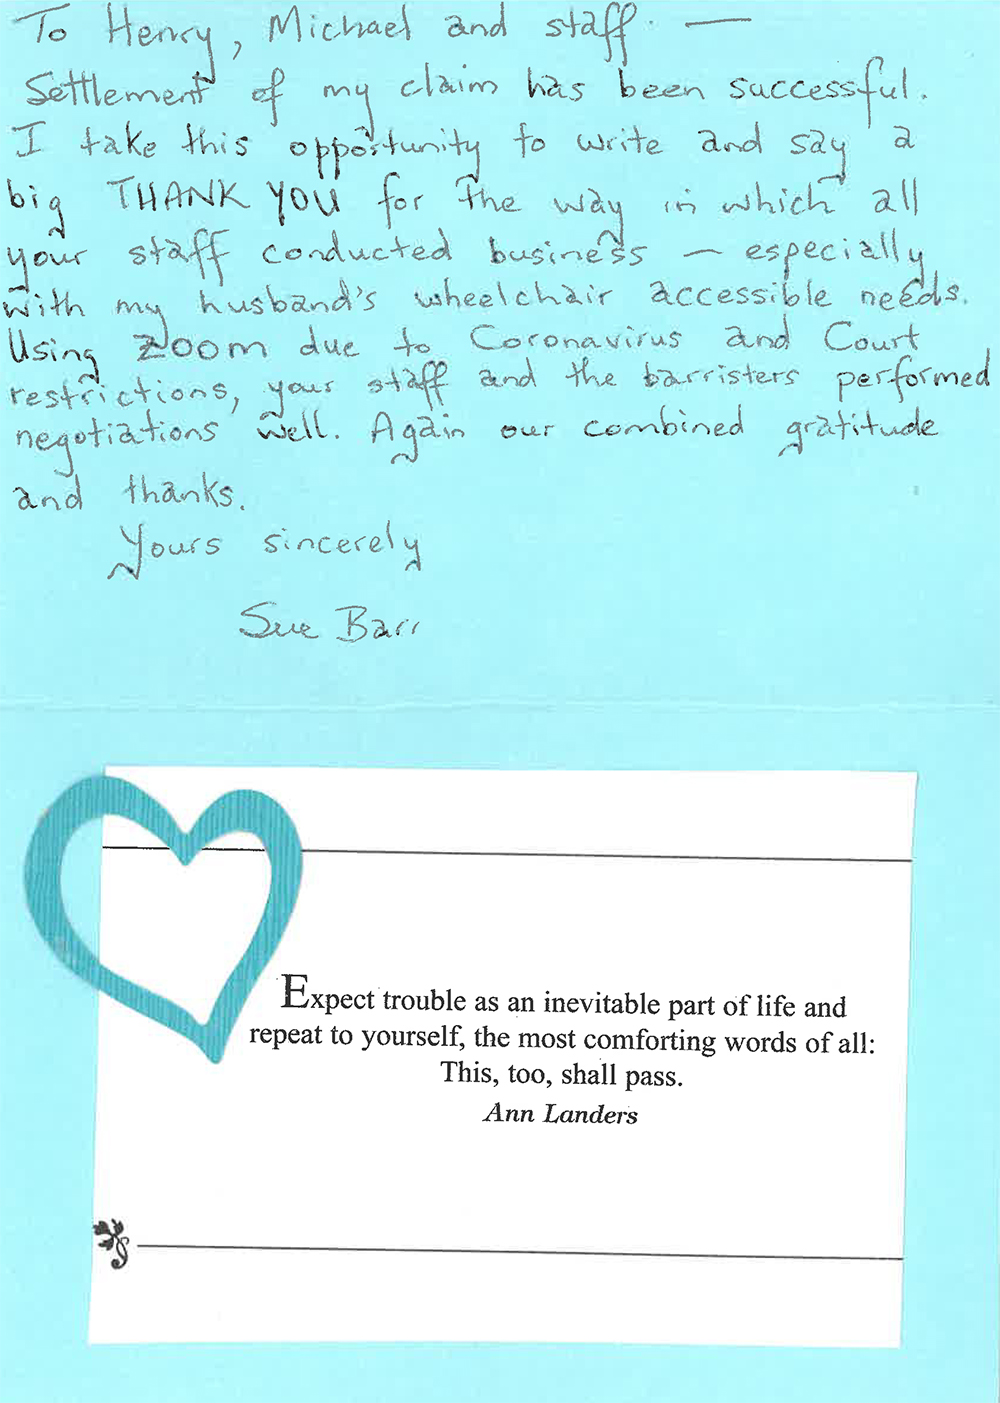 To Henry, Michael and staff. —
Settlement of my claim has been successful.
I take this opportunity to write and say a
big THANK YOU for the way in which all
your staff conducted business — especially
with my husband's wheelchair accessible needs.
Using ZOOM due to Coronavirus and Court
restrictions, your staff and the barristers performed
negotiations well. Again our combined gratitude
and thanks.
Yours sincerely
Sue Barr
Expect trouble as an inevitable part of life and
repeat to yourself, the most comforting words of all:
This, too, shall pass.
Ann Landers